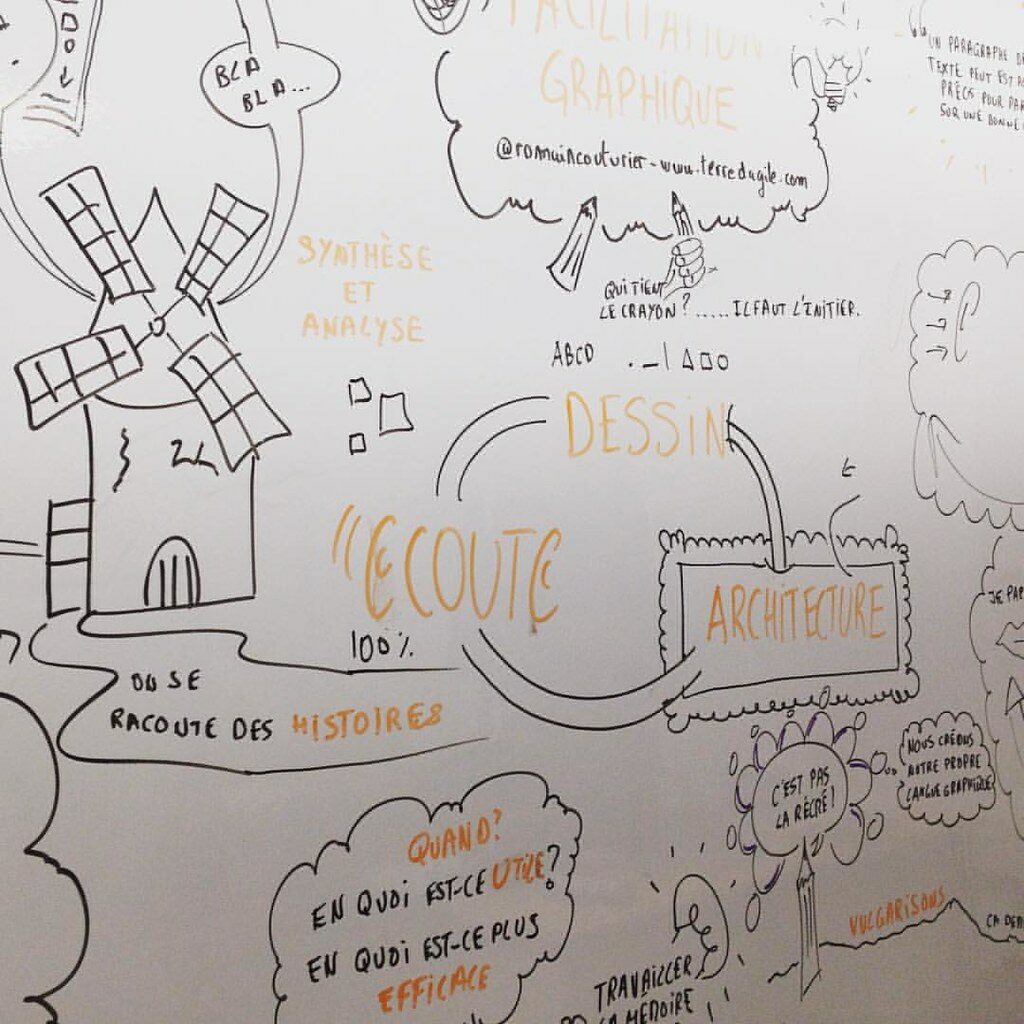 BLA
BLA...
FACILITATION
GRAPHIQUE
@romaincouturier - www.terredagile.com
UN PARAGRAPHE DE
TEXTE PEUT
PRÉCIS POUR
SUR UNE BONNE
SYNTHÈSE
ET
ANALYSE
QUI TIENT
LE CRAYON ? ..... IL FAUT L'INITIER.
ABCD . _ |
DESSIN
"ECOUTE
100%
ARCHITECTURE
OU SE
RACOUTE DES HISTOIRES
JE
C'EST PAS
LA RÉCRÉ !
NOUS CRÉONS
NOTRE PROPRE
LANGUE GRAPHIQUE
QUAND ?
EN QUOI EST-CE UTILE ?
EN QUOI EST-CE PLUS
EFFICACE
VULGARISONS
TRAVAILLER
LA MÉMOIRE